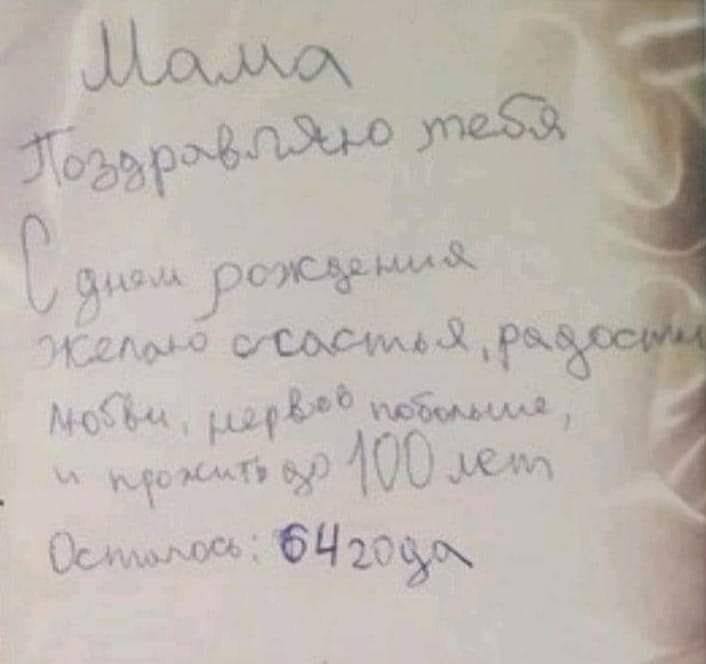 Мама
Поздравляю тебя
С днем рождения
желаю счастья, радости
любви, нервов побольше,
и прожить до 100 лет
Осталось: 64 года